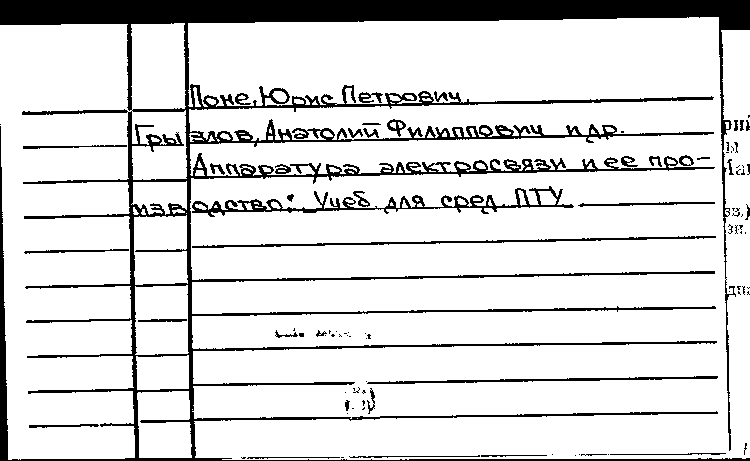 Поне, Юрис Петрович.
Грызлов, Анатолий Филиппович и др.
Аппаратура электросвязи и ее про-
изводство: Учеб. для сред. ПТУ.